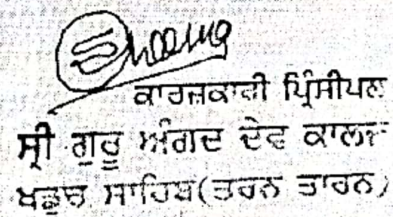 ਕਾਰਜਕਾਰੀ ਪ੍ਰਿੰਸੀਪਲ
ਸ੍ਰੀ ਗੁਰੂ ਅੰਗਦ ਦੇਵ ਕਾਲਜ
ਖਡੂਰ ਸਾਹਿਬ (ਤਰਨ ਤਾਰਨ)